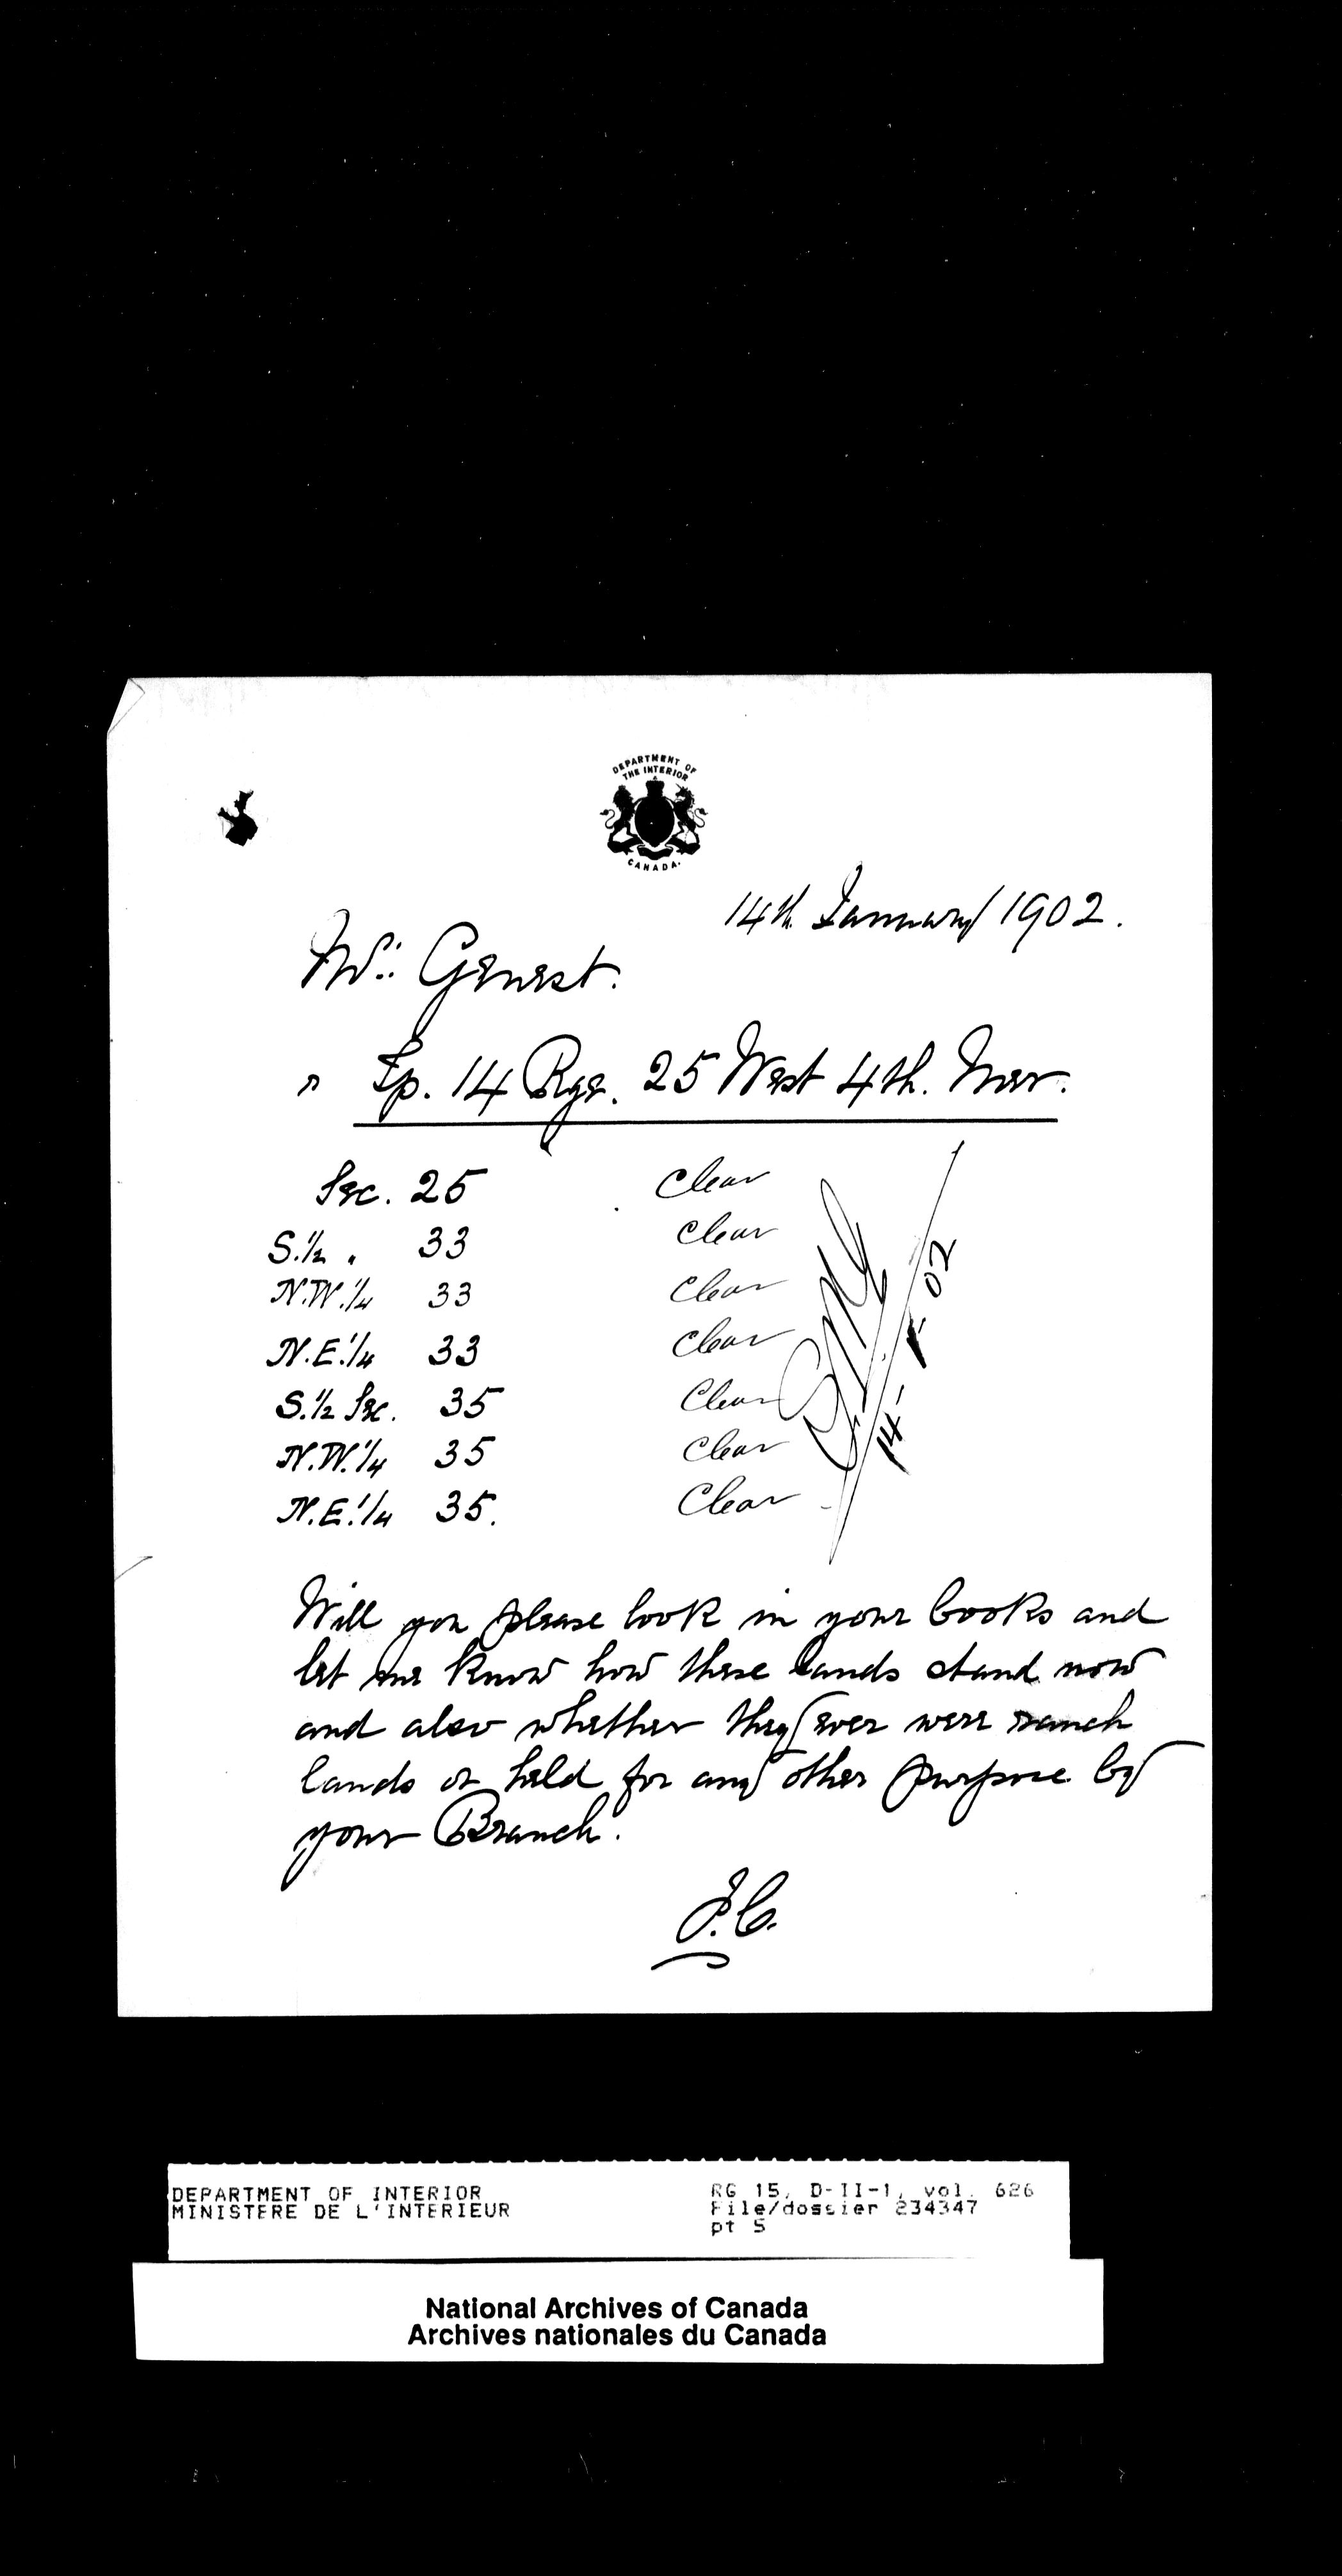 DEPARTMENT OF
THE INTERIOR
CANADA.
14th January 1902.
Mr: Genest.
" Tp. 14 Rge. 25 West 4th. Mer.
Sec. 25 Clear
S.1/2 " 33 Clear
N.W.1/4 33 Clear
N.E.1/4 33 Clear
S.1/2 Sec. 35 Clear
N.W.1/4 35 Clear
N.E.1/4 35. Clear
14-1-02
Will you please look in your books and
let me know how these lands stand now
and also whether they ever were ranch
lands or held for any other purpose by
your Branch.
J.C.
DEPARTMENT OF INTERIOR RG 15, D-II-1, vol. 626
MINISTERE DE L'INTERIEUR File/dossier 234347
pt 5
National Archives of Canada
Archives nationales du Canada